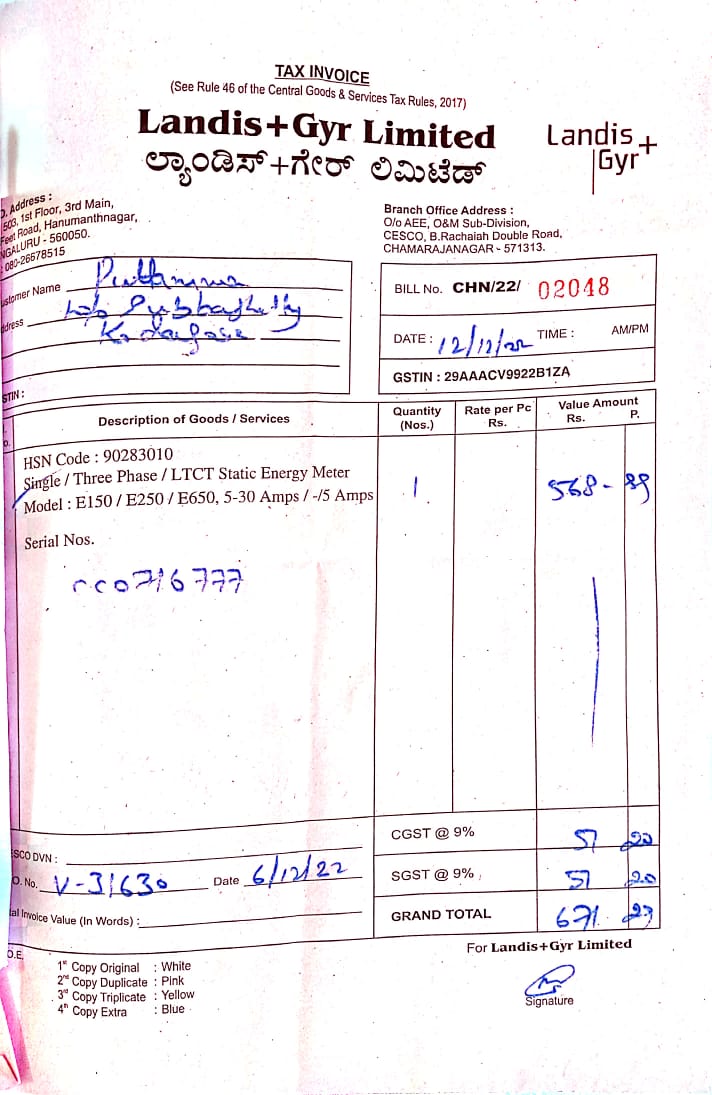 TAX INVOICE
(See Rule 46 of the Central Goods & Services Tax Rules, 2017)
Landis+Gyr Limited
ಲ್ಯಾಂಡಿಸ್+ಗೇರ್ ಲಿಮಿಟೆಡ್
Landis+
Gyr
Address :
503, 1st Floor, 3rd Main,
Feet Road, Hanumanthnagar,
NGALURU - 560050.
080-26678515
Branch Office Address :
O/o AEE, O&M Sub-Division,
CESCO, B.Rachaiah Double Road,
CHAMARAJANAGAR - 571313.
ustomer Name Puttamma
ddress
BILL No. CHN/22/ 02048
DATE : 12/12/22 TIME : AM/PM
GSTIN : 29AAACV9922B1ZA
STIN :
Description of Goods / Services
Quantity (Nos.)
Rate per Pc Rs.
Value Amount Rs. P.
HSN Code : 90283010
Single / Three Phase / LTCT Static Energy Meter
Model : E150 / E250 / E650, 5-30 Amps / -/5 Amps
1 568-
Serial Nos.
rc0716777
CGST @ 9% 51 20
SGST @ 9% 51 20
GRAND TOTAL 671
SCO DVN :
O. No. V-31630 Date 6/12/22
al Invoice Value (In Words) :
O.E.
For Landis+Gyr Limited
1st Copy Original : White
2nd Copy Duplicate : Pink
3rd Copy Triplicate : Yellow
4th Copy Extra : Blue
Signature